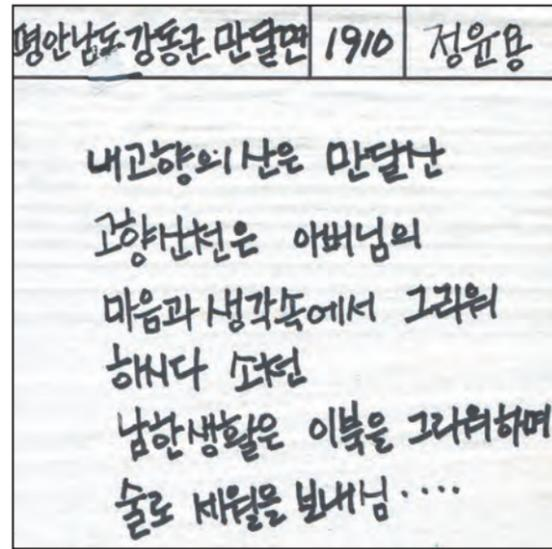 평안남도 강동군 만달면 1910 정윤용
내고향의 산은 만달산
고향산천은 아버님의
마음과 생각속에서 그리워
하시다 소천
남한생활은 이북을 그리워하며
술로 세월을 보내심....